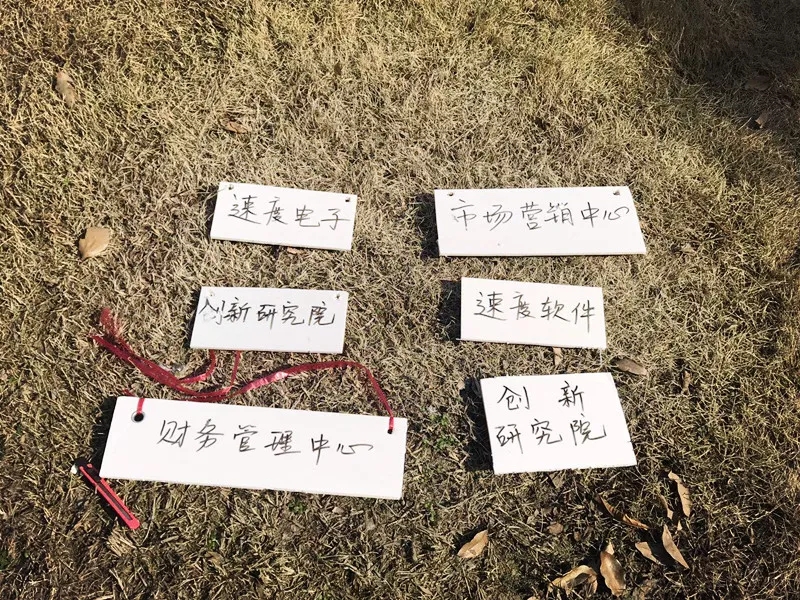 速度电子
市场营销中心
创新研究院
速度软件
财务管理中心
创新
研究院